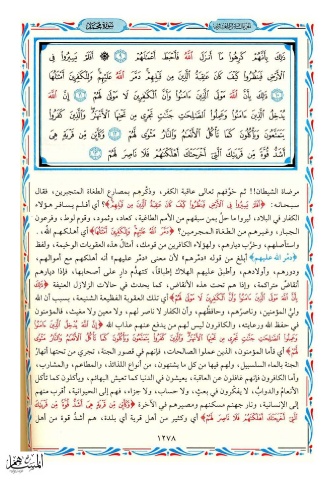 سورة محمد
ذَٰلِكَ بِأَنَّهُمْ كَرِهُوا مَا أَنزَلَ اللَّهُ فَأَحْبَطَ أَعْمَالَهُمْ ۞ أَفَلَمْ يَسِيرُوا فِي
الْأَرْضِ فَيَنظُرُوا كَيْفَ كَانَ عَاقِبَةُ الَّذِينَ مِن قَبْلِهِمْ دَمَّرَ اللَّهُ عَلَيْهِمْ وَلِلْكَافِرِينَ أَمْثَالُهَا
ذَٰلِكَ بِأَنَّ اللَّهَ مَوْلَى الَّذِينَ آمَنُوا وَأَنَّ الْكَافِرِينَ لَا مَوْلَىٰ لَهُمْ إِنَّ اللَّهَ
يُدْخِلُ الَّذِينَ آمَنُوا وَعَمِلُوا الصَّالِحَاتِ جَنَّاتٍ تَجْرِي مِن تَحْتِهَا الْأَنْهَارُ وَالَّذِينَ كَفَرُوا
يَتَمَتَّعُونَ وَيَأْكُلُونَ كَمَا تَأْكُلُ الْأَنْعَامُ وَالنَّارُ مَثْوًى لَّهُمْ وَكَأَيِّن مِّن قَرْيَةٍ هِيَ
أَشَدُّ قُوَّةً مِّن قَرْيَتِكَ الَّتِي أَخْرَجَتْكَ أَهْلَكْنَاهُمْ فَلَا نَاصِرَ لَهُمْ
مرضاة الشيطان!! ثم خوّفهم تعالى عاقبة الكفر، وذكّرهم بمصارع الطغاة المتجبرين، فقال
سبحانه: ﴿أَفَلَمْ يَسِيرُوا فِي الْأَرْضِ فَيَنظُرُوا كَيْفَ كَانَ عَاقِبَةُ الَّذِينَ مِن قَبْلِهِمْ﴾؟ أي أفلم يسافر هؤلاء
الكفار في البلاد، ليروا ما حلّ بمن سبقهم من الأمم الطاغية، كعاد، وثمود، وقوم لوط، وفرعون
الجبار، وغيرهم من الطغاة المجرمين؟ ﴿دَمَّرَ اللَّهُ عَلَيْهِمْ وَلِلْكَافِرِينَ أَمْثَالُهَا﴾ أي أهلكهم الله،
واستأصلهم، وخرّب ديارهم، ولهؤلاء الكافرين من قومك، أمثال هذه العقوبات الوخيمة، ولفظ
﴿دمّر الله عليهم﴾ أبلغ من قوله «دمّرهم» لأن معنى «دمّر عليهم» أنه أهلكهم مع أموالهم،
ودورهم، وأولادهم، وأطبق عليهم الهلاك إطباقاً، كتهدّم دارٍ على أصحابها، فإذا ديارهم
أنقاضٌ متراكمة، وإذا هم تحت هذه الأنقاض، كما يحدث في حالات الزلازل العنيفة ﴿ذَٰلِكَ
بِأَنَّ اللَّهَ مَوْلَى الَّذِينَ آمَنُوا وَأَنَّ الْكَافِرِينَ لَا مَوْلَىٰ لَهُمْ﴾ أي تلك العقوبة الفظيعة الشنيعة، بسبب أن الله
وليُّ المؤمنين، وناصرُهم، وحافظُهم، وأن الكفار لا ناصر لهم، ولا معين ولا مغيث، فالمؤمنون
في حفظ الله ورعايته، والكافرون ليس لهم من يدفع عنهم عذاب الله ﴿إِنَّ اللَّهَ يُدْخِلُ الَّذِينَ آمَنُوا
وَعَمِلُوا الصَّالِحَاتِ جَنَّاتٍ تَجْرِي مِن تَحْتِهَا الْأَنْهَارُ وَالَّذِينَ كَفَرُوا يَتَمَتَّعُونَ وَيَأْكُلُونَ كَمَا تَأْكُلُ الْأَنْعَامُ وَالنَّارُ مَثْوًى
لَّهُمْ﴾ أي فأما المؤمنون، الذين عملوا الصالحات، فإنهم في قصور الجنة، تجري من تحتها أنهار
الجنة بالماء السلسبيل، ولهم فيها من كل ما يشتهون، من أنواع اللذائذ، والمطاعم، والمشارب،
وأما الكافرون فإنهم غافلون عن العاقبة، يعيشون في الدنيا كما تعيش البهائم، ويأكلون كما تأكل
الأنعام والدوابُّ، لا يفكّرون في بعثٍ، ولا حساب، ولا جزاء، فهم إلى الحيوانية، أقرب منهم
إلى الإنسانية، ونار جهنم مسكنهم ومصيرهم في الآخرة ﴿وَكَأَيِّن مِّن قَرْيَةٍ هِيَ أَشَدُّ قُوَّةً مِّن قَرْيَتِكَ
الَّتِي أَخْرَجَتْكَ أَهْلَكْنَاهُمْ فَلَا نَاصِرَ لَهُمْ﴾ أي وكثير من أهل قرية أي بلدة، هم أشدُّ قوة من أهل
١٢٧٨